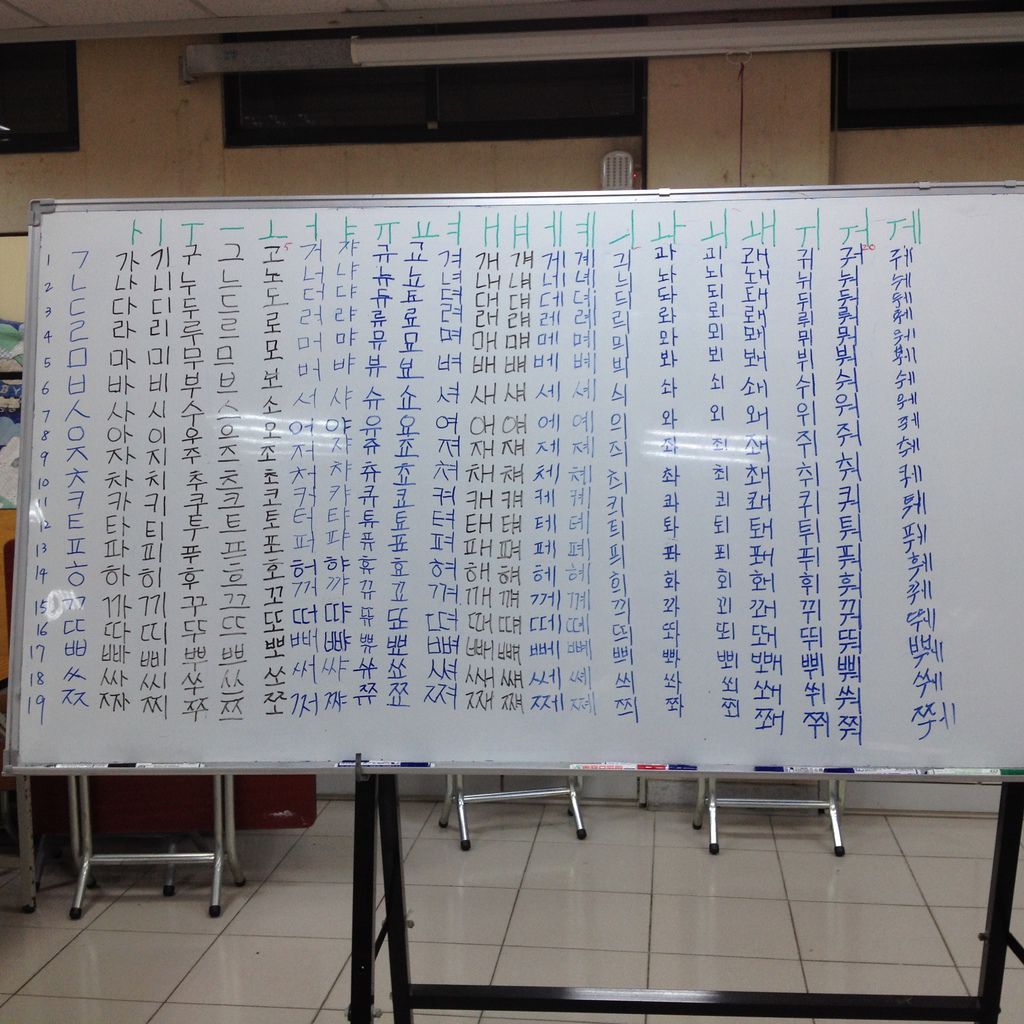 ㅏ ㅣ ㅜ ㅡ ㅗ ㅓ ㅑ ㅠ ㅛ ㅕ ㅐ ㅒ ㅔ ㅖ ㅢ ㅘ ㅚ ㅙ ㅟ ㅝ ㅞ
5 20
1 ㄱ 가 기 구 그 고 거 갸 규 교 겨 개 걔 게 계 긔 과 괴 괘 귀 궈 궤
2 ㄴ 나 니 누 느 노 너 냐 뉴 뇨 녀 내 냬 네 녜 늬 놔 뇌 놰 뉘 눠 눼
3 ㄷ 다 디 두 드 도 더 댜 듀 됴 뎌 대 댸 데 뎨 듸 돠 되 돼 뒤 둬 뒈
4 ㄹ 라 리 루 르 로 러 랴 류 료 려 래 럐 레 례 릐 롸 뢰 뢔 뤼 뤄 뤠
5 ㅁ 마 미 무 므 모 머 먀 뮤 묘 며 매 먜 메 몌 믜 뫄 뫼 뫠 뮈 뭐 뭬
6 ㅂ 바 비 부 브 보 버 뱌 뷰 뵤 벼 배 뱨 베 볘 븨 봐 뵈 봬 뷔 붜 붸
7 ㅅ 사 시 수 스 소 서 샤 슈 쇼 셔 새 섀 세 셰 싀 솨 쇠 쇄 쉬 숴 쉐
8 ㅇ 아 이 우 으 오 어 야 유 요 여 애 얘 에 예 의 와 외 왜 위 워 웨
9 ㅈ 자 지 주 즈 조 저 쟈 쥬 죠 져 재 쟤 제 졔 즤 좌 죄 좨 쥐 줘 줴
10 ㅊ 차 치 추 츠 초 처 챠 츄 쵸 쳐 채 챼 체 쳬 츼 촤 최 쵀 취 춰 췌
11 ㅋ 카 키 쿠 크 코 커 캬 큐 쿄 켜 캐 컈 케 켸 킈 콰 쾨 쾌 퀴 쿼 퀘
12 ㅌ 타 티 투 트 토 터 탸 튜 툐 텨 태 턔 테 톄 틔 톼 퇴 퇘 튀 퉈 퉤
13 ㅍ 파 피 푸 프 포 퍼 퍄 퓨 표 펴 패 퍠 페 폐 픠 퐈 푀 퐤 퓌 풔 풰
14 ㅎ 하 히 후 흐 호 허 햐 휴 효 혀 해 햬 헤 혜 희 화 회 홰 휘 훠 훼
15 ㄲ 까 끼 꾸 끄 꼬 꺼 꺄 뀨 꾜 껴 깨 꺠 께 꼐 끠 꽈 꾀 꽤 뀌 꿔 꿰
16 ㄸ 따 띠 뚜 뜨 또 떠 땨 뜌 뚀 뗘 때 떄 떼 뗴 띄 똬 뙤 뙈 뛰 뚸 뛔
17 ㅃ 빠 삐 뿌 쁘 뽀 뻐 뺘 쀼 뾰 뼈 빼 뺴 뻬 뼤 쁴 뽜 뾔 뽸 쀠 뿨 쀄
18 ㅆ 싸 씨 쑤 쓰 쏘 써 쌰 쓔 쑈 쎠 쌔 썌 쎄 쎼 씌 쏴 쐬 쐐 쒸 쒀 쒜
19 ㅉ 짜 찌 쭈 쯔 쪼 쩌 쨔 쮸 쬬 쪄 째 쨰 쩨 쪠 쯰 쫘 쬐 쫴 쮜 쭤 쮀